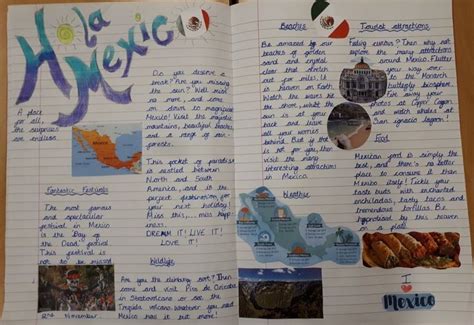 Hola
Mexico
A place
for all,
the surprises
are endless
Do you deserve a
break? Are you missing
the sun? Well miss
no more, and come
on down to magnificent
Mexico! Visit the majestic
mountains, beautiful beaches
and a range of rain-
forests.
This pocket of paradise
is nestled between
North and South
America, and is the
perfect getaway for
your next holiday!
Miss this, miss happi-
ness.
DREAM IT! LIVE IT!
LOVE IT!
Fantastic Festivals
The most famous
and spectacular
festival in Mexico
is the Day of
the Dead festival.
This festival is
not to be missed
2nd November.
Wildlife
Are you the climbing sort? Then
come and visit Pico de Orizaba
in Stratovolcano or see the
volcano. Whatever you need
Mexico has it but more!
Beaches
Be amazed by our
beaches of golden
sand and crystal
clear that stretch
out for miles. It
is Heaven on Earth.
Watch the waves hit
the shore, whilst the
sun is at your
back and leave
all your worries
behind. But if this
is not for you, then
visit the many
interesting attractions
in Mexico.
Weather
Tourist attractions
Feeling curious? Then why not
explore the many attractions
around Mexico. Flutter
your way over
to the Monarch
butterfly biosphere.
Fire away your
photos at Copper Canyon
and watch whales at
san ignacio lagoon!
Food
Mexican food is simply the
best, and there's no better
place to consume it than
Mexico itself! Tickle your
taste buds with enchanted
enchiladas, tasty tacos and
tremendous tortillas. Be
hypnotised by this heaven
on a plate.
I
Mexico